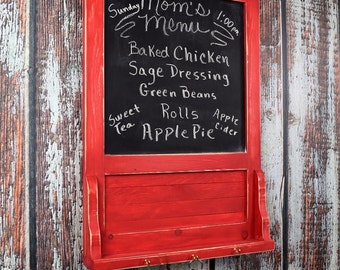 Sunday
Mom's
1:00pm
Menu
Baked Chicken
Sage Dressing
Green Beans
Rolls
Sweet
Tea
Apple
Cider
Apple Pie